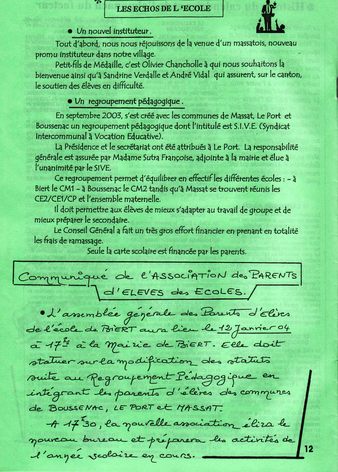 LES ECHOS DE L'ECOLE
• Un nouvel instituteur.
Tout d'abord, nous nous réjouissons de la venue d'un massatois, nouveau
promu instituteur dans notre village.
Petit-fils de Médaille, c'est Olivier Chancholle à qui nous souhaitons la
bienvenue ainsi qu'à Sandrine Verdalle et André Vidal qui assurent, sur le canton,
le soutien des élèves en difficulté.
• Un regroupement pédagogique.
En septembre 2003, s'est créé avec les communes de Massat, Le Port et
Boussenac un regroupement pédagogique dont l'intitulé est S.I.V.E. (Syndicat
Intercommunal à Vocation Educative).
La Présidence et le secrétariat ont été attribués à Le Port. La responsabilité
générale est assurée par Madame Sutra Françoise, adjointe à la mairie et élue à
l'unanimité par le SIVE.
Ce regroupement permet d'équilibrer en effectif les différentes écoles : - à
Biert le CM1 - à Boussenac le CM2 tandis qu'à Massat se trouvent réunis les
CE2/CE1/CP et l'ensemble maternelle.
Il doit permettre aux élèves de mieux s'adapter au travail de groupe et de
mieux préparer le secondaire.
Le Conseil Général a fait un très gros effort financier en prenant en totalité
les frais de ramassage.
Seule la carte scolaire est financée par les parents.
Communiqué de l'ASSOCIATION des PARENTS
d'ELEVES des ECOLES.
• L'assemblée générale des Parents d'Elèves
de l'école de BIERT aura lieu le 12 Janvier 04
à 17h à la Mairie de BIERT. Elle doit
statuer sur la modification des statuts
suite au Regroupement Pédagogique en
intégrant les parents d'élèves des communes
de BOUSSENAC, LE PORT et MASSAT.
A 17h30, la nouvelle association élira le
nouveau bureau et préparera les activités de
l'année scolaire en cours.
12